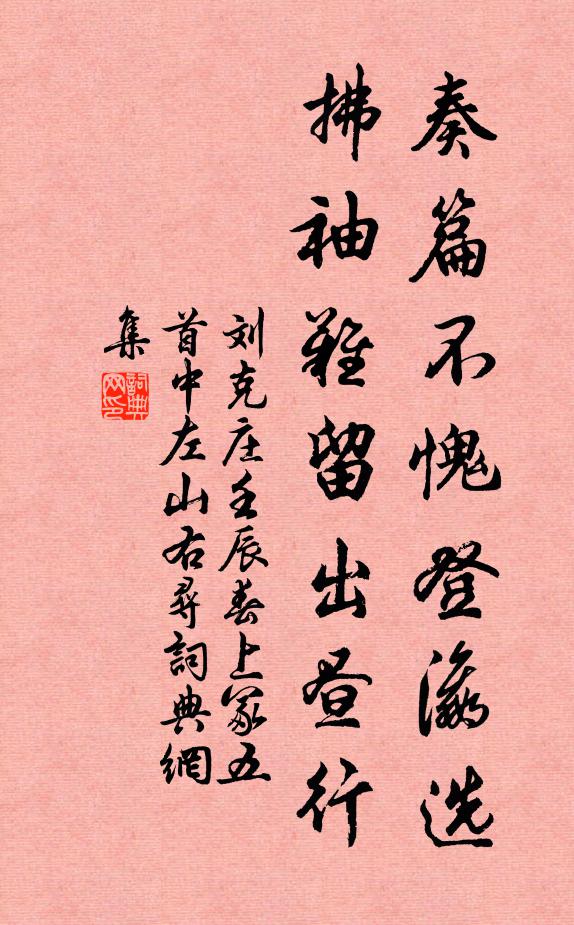 奏篇不愧登瀛选
拂袖難留出昼行
刘克庄壬辰春上冢五
首中左山右尋詞典網
集
詞典网印